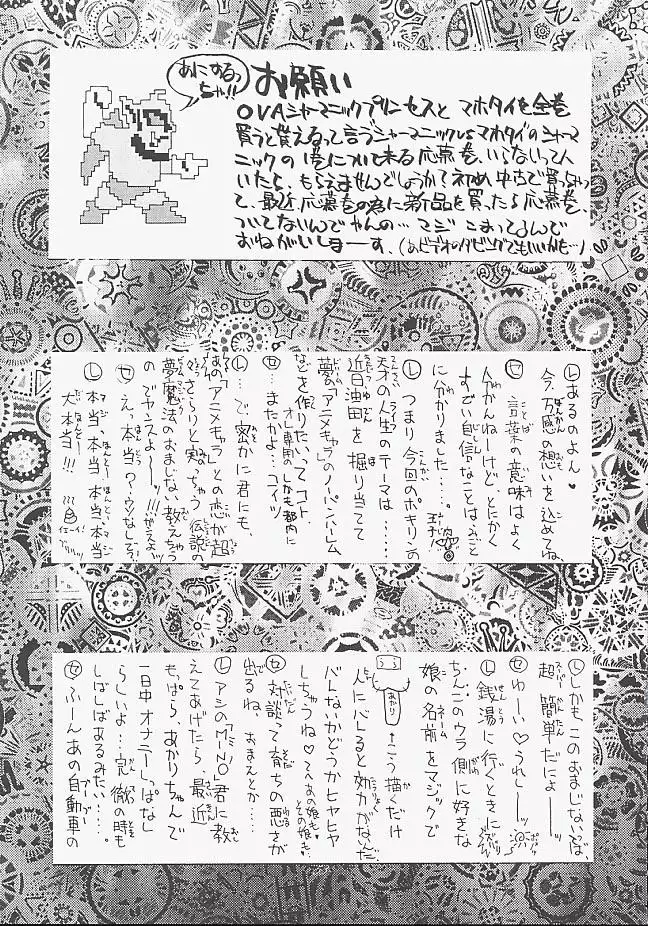 あにするっ
ちゃ!!
お願い
OVAシャーマニックプリンセスと マホタイを全巻
買うと貰えるって言うシャーマニックVSマホタイのシャーマ
ニックの1巻についで来る応募巻、いらないって人
いたら、もらえませんでしょうか?初め中古で買っちゃっ
て、最近、応募巻の為に新品を買ったら応募巻、
ついてないんでやんの…マジ こまってるんで
おねがいしまーす。
レ あるのよん♥
今、万感の想いを込めてね
セ 言葉の意味はよく
分かんねーけど、とにかく
すごい自信なことはみごと
に分かりました……。
レ つまり今回のポキリンの
天才の人生のテーマは……
近日油田を掘り当てて
夢の「アニメキャラ」のノーパンハーム
などを作りたいってコト。
オレ専用のしかも都内に
セ またかよ…コイツ
レ …で、密かに君にも、
あの「アニメキャラ」との恋が超
さらりと実っちゃう伝説の
夢魔法のおまじない教えちゃう
のでヤンスよーーッ!!!
セ えっ本当?
レ 本当、本当、本当、
大本当!!!
レ しかもこのおまじないは、
超簡単だによーーッ
セ わーい♡うれしーーッ
レ 銭湯に行くときに
ちんこのウラ側に好きな
娘の名前をマジックで
あかり
↑こう描くだけ
人にバレると効力がないんだ
バレないかどうかヒヤヒヤ
しちゃうね♡てへあの娘も♥
その娘も♥
セ 対談って育ちの悪さが
出るね、おまえとか……
レ アシのMINO君に教
えてあげたら、最近
もっぱら、あかりちゃんで
一日中オナニーしっぱなし
らしいよ…完徹の時も
しばしばあるみたい……。
セ ふーんあの自動車の